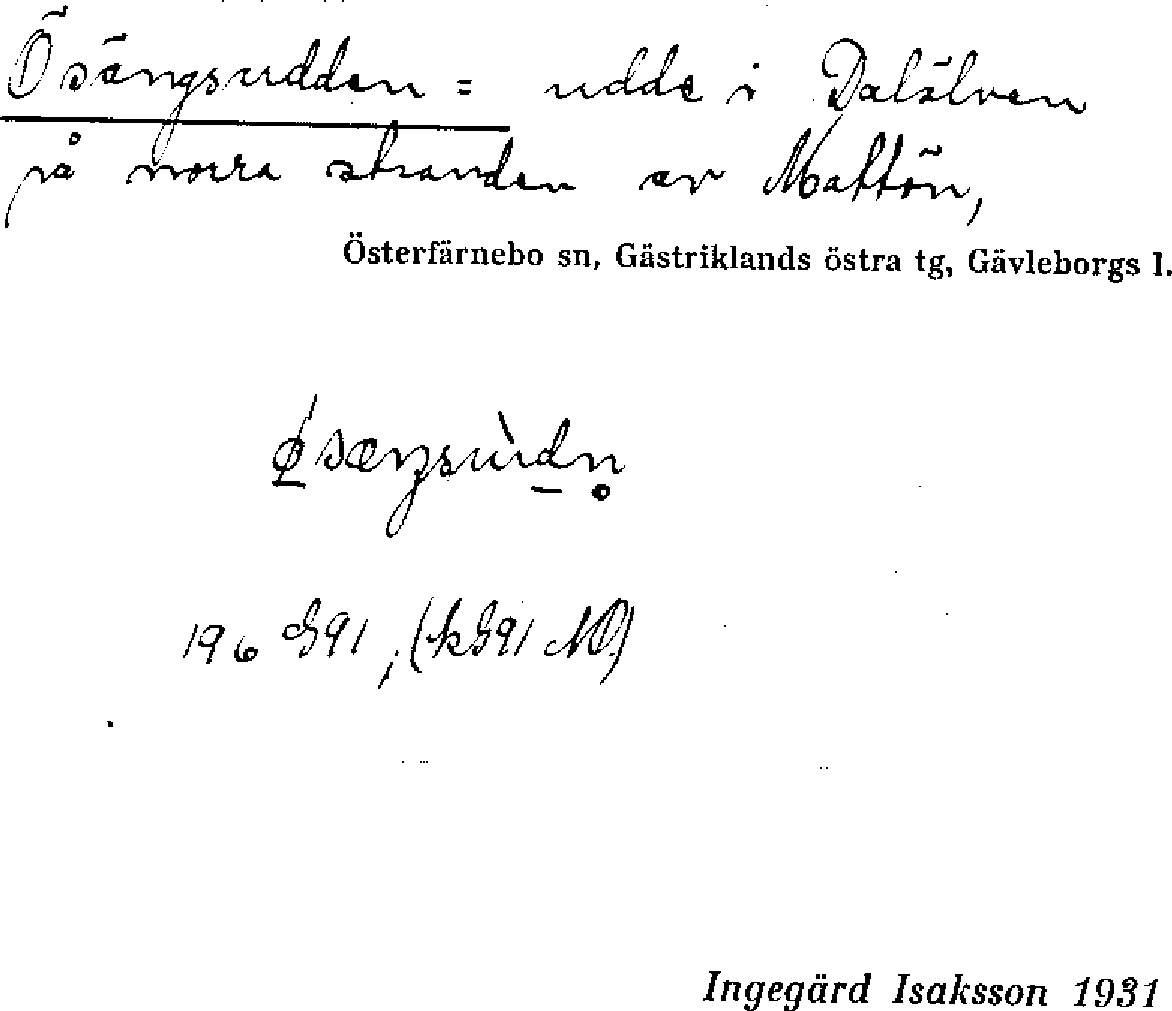 Ösängsudden = udde i Dalälven
på norra stranden av Mattön,
Österfärnebo sn, Gästriklands östra tg, Gävleborgs l.
ǿsæŋsùdn̥
196 G91, (kG91 NO)
Ingegärd Isaksson 1931